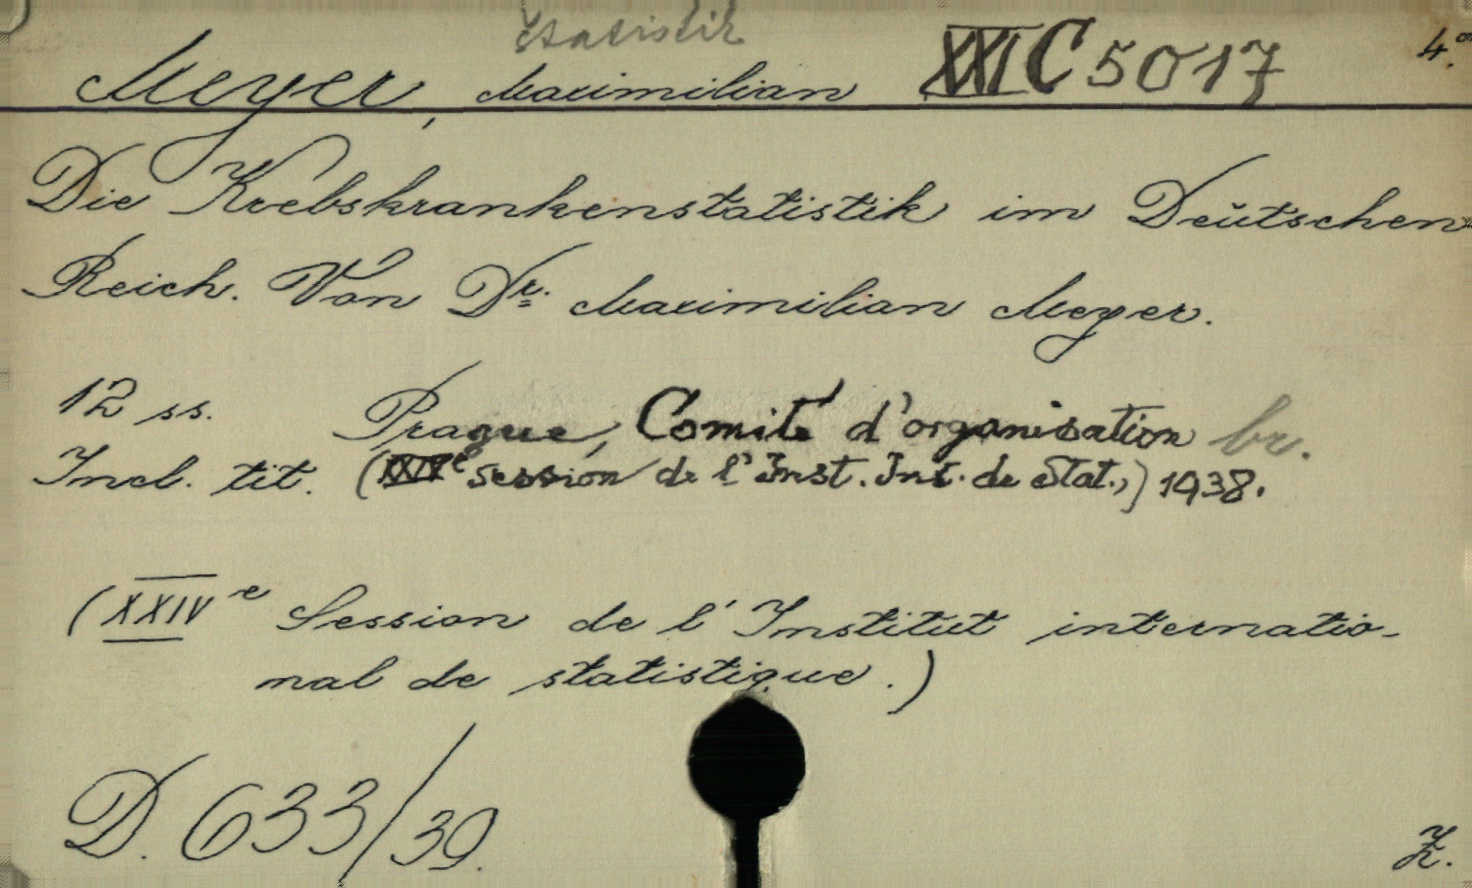 statistik
Meyer, Maximilian XXI C 5017 4°.
Die Krebskrankenstatistik im Deŭtschen
Reich. Von Dr. Maximilian Meyer.
12 ss. Prague, Comité d'organisation br.
Incl. tit. (XXIVe session de l'Inst. Int. de Stat.,) 1938.
(XXIVe Session de l'Institut internatio-
nal de statistique.)
D. 633/39.
Z.